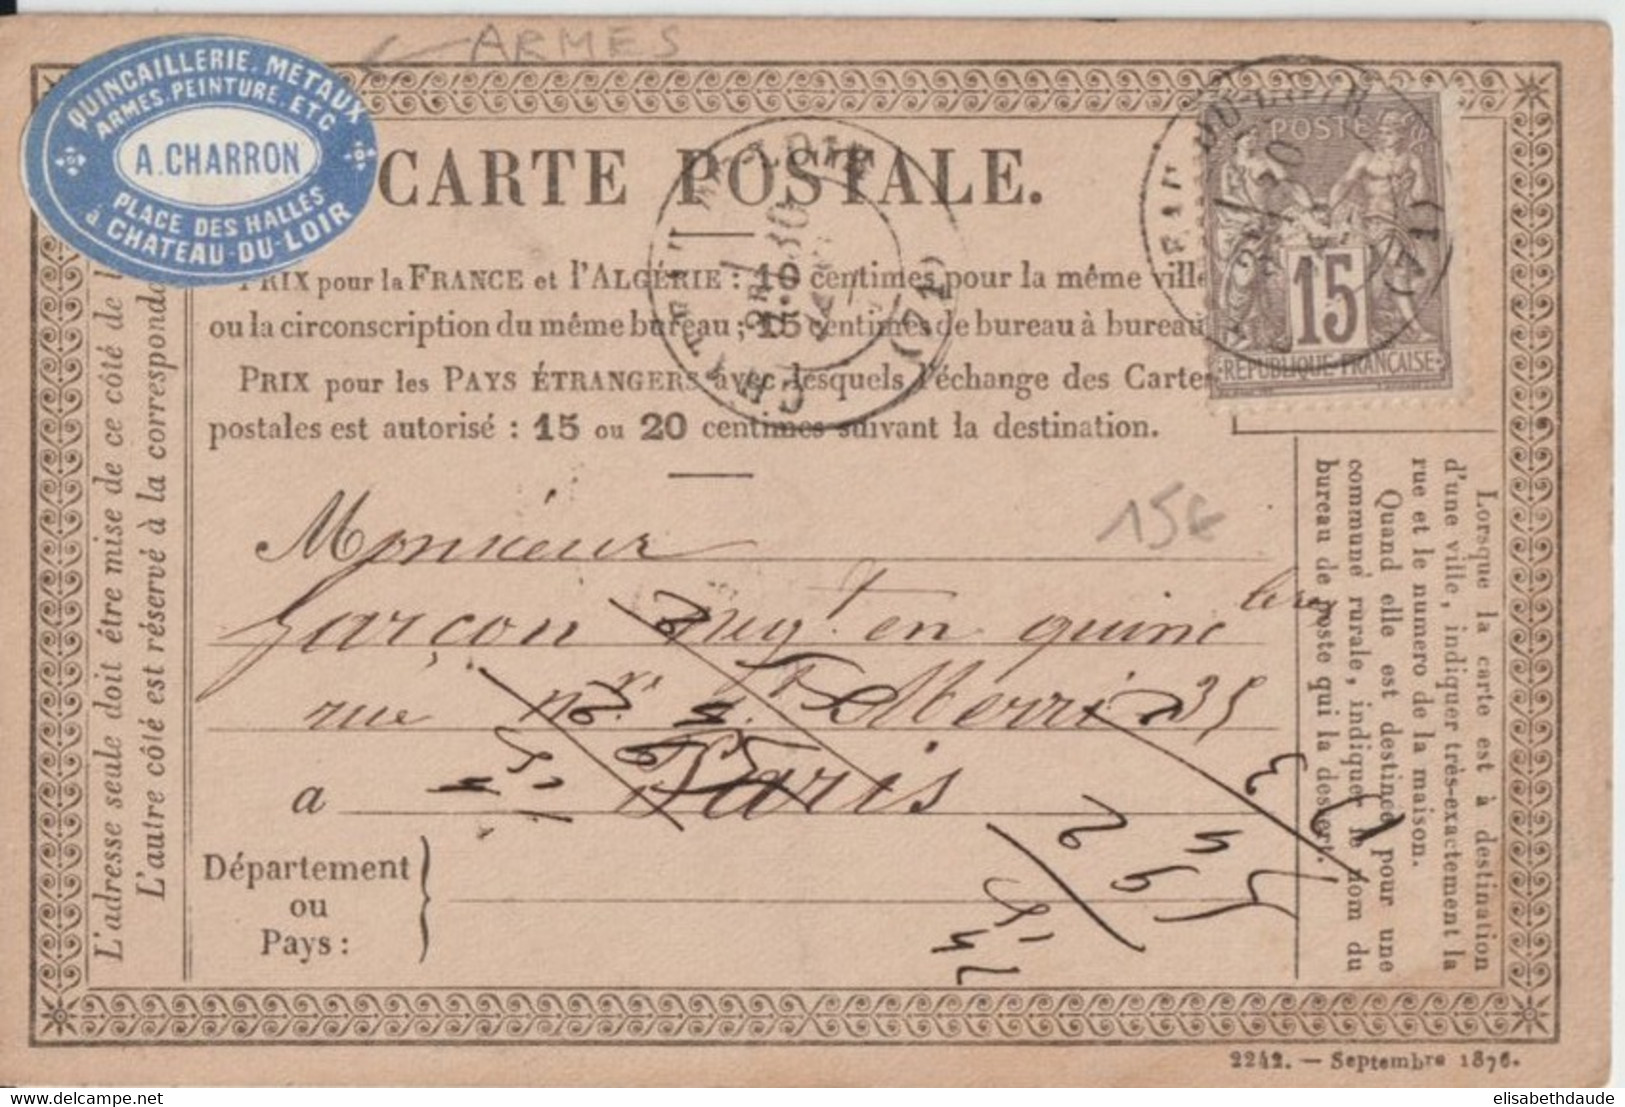 ARMES
QUINCAILLERIE. MÉTAUX
ARMES. PEINTURE. ETC
A. CHARRON
PLACE DES HALLES
à CHATEAU-DU-LOIR
CARTE POSTALE.
POSTE
15
RÉPUBLIQUE-FRANÇAISE
PRIX pour la FRANCE et l'ALGÉRIE : 10 centimes pour la même ville
ou la circonscription du même bureau ; 15 centimes de bureau à bureau
PRIX pour les PAYS ÉTRANGERS avec lesquels l'échange des Cartes
postales est autorisé : 15 ou 20 centimes suivant la destination.
15€
Monsieur
Garçon negt en quinc
rue St Merri 35
a Paris
Département
ou
Pays :
L'adresse seule doit être mise de ce côté de l
L'autre côté est réservé à la corresponda
Lorsque la carte est à destination
d'une ville, indiquer très-exactement la
rue et le numero de la maison.
Quand elle est destinée pour une
commune rurale, indiquer le nom du
bureau de poste qui la dessert.
2242. — Septembre 1876.
www.delcampe.net
elisabethdaude